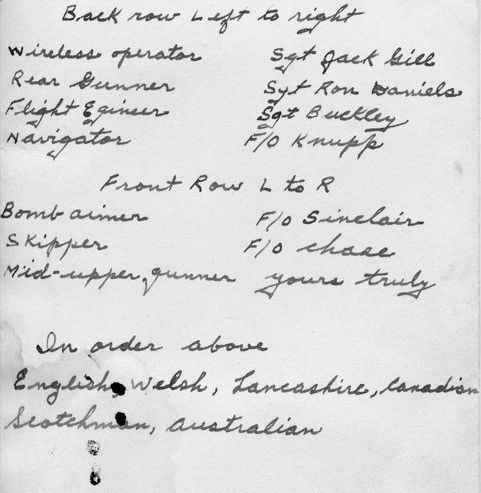 Back row Left to right
Wireless operator Sgt Jack Gill
Rear Gunner Sgt Ron Daniels
Flight Egineer Sgt Buckley
Navigator F/O Knupp
Front Row L to R
Bomb aimer F/O Sinclair
Skipper F/O Chase
Mid-upper gunner yours truly
In order above
English, Welsh, Lancashire, Canadian
Scotchman, Australian